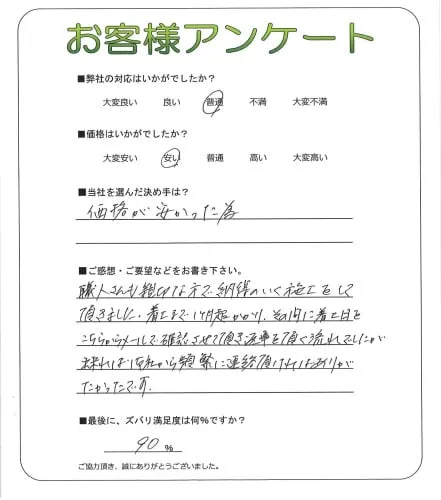 お客様アンケート
■弊社の対応はいかがでしたか？
大変良い 良い 普通 不満 大変不満
■価格はいかがでしたか？
大変安い 安い 普通 高い 大変高い
■当社を選んだ決め手は？
価格が安かった為
■ご感想・ご要望などをお書き下さい。
職人さんも親切な方で納得のいく施工をして
頂きました。着工まで1ヶ月超かかり、その間に着工日を
こちらからメールで確認させて頂き返事を頂く流れでしたが
出来れば御社から頻繁に連絡頂ければありが
たかったです。
■最後に、ズバリ満足度は何%ですか？
90 %
ご協力頂き、誠にありがとうございました。